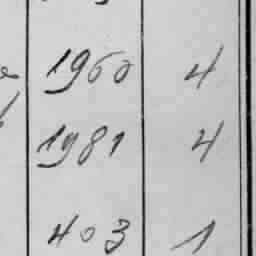 1960 4
1981 4
403 1